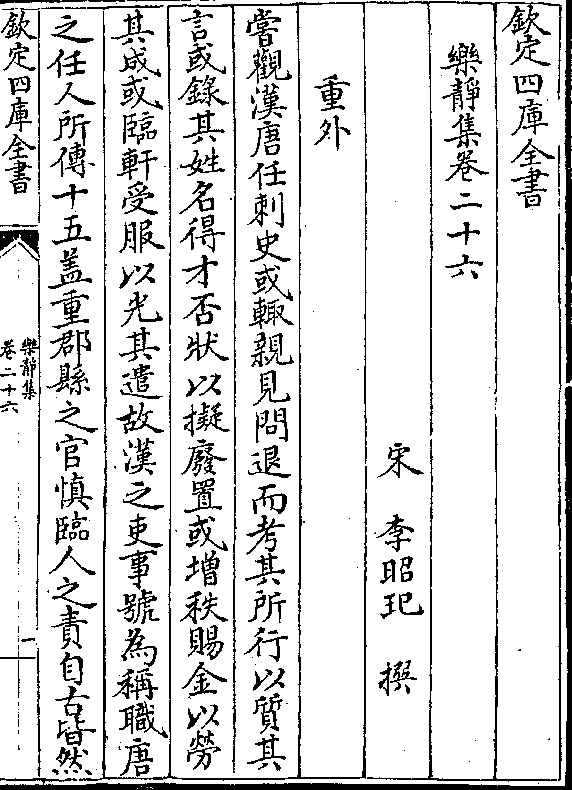 欽定四庫全書
樂静集卷二十六
宋 李昭玘 撰
重外
嘗觀漢唐任刺史或輙親見問退而考其所行以質其
言或錄其姓名得才否狀以擬廢置或增秩賜金以勞
其成或臨軒受服以光其遣故漢之吏事號為稱職唐
之任人所傳十五葢重郡縣之官慎臨人之責自古皆然
欽定四庫全書
樂静集
卷二十六
一